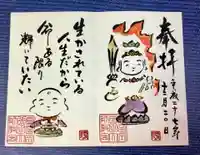 奉拝
平成二十七年
十二月二日
生かされている
人生だから
命ある限り
輝いていたい